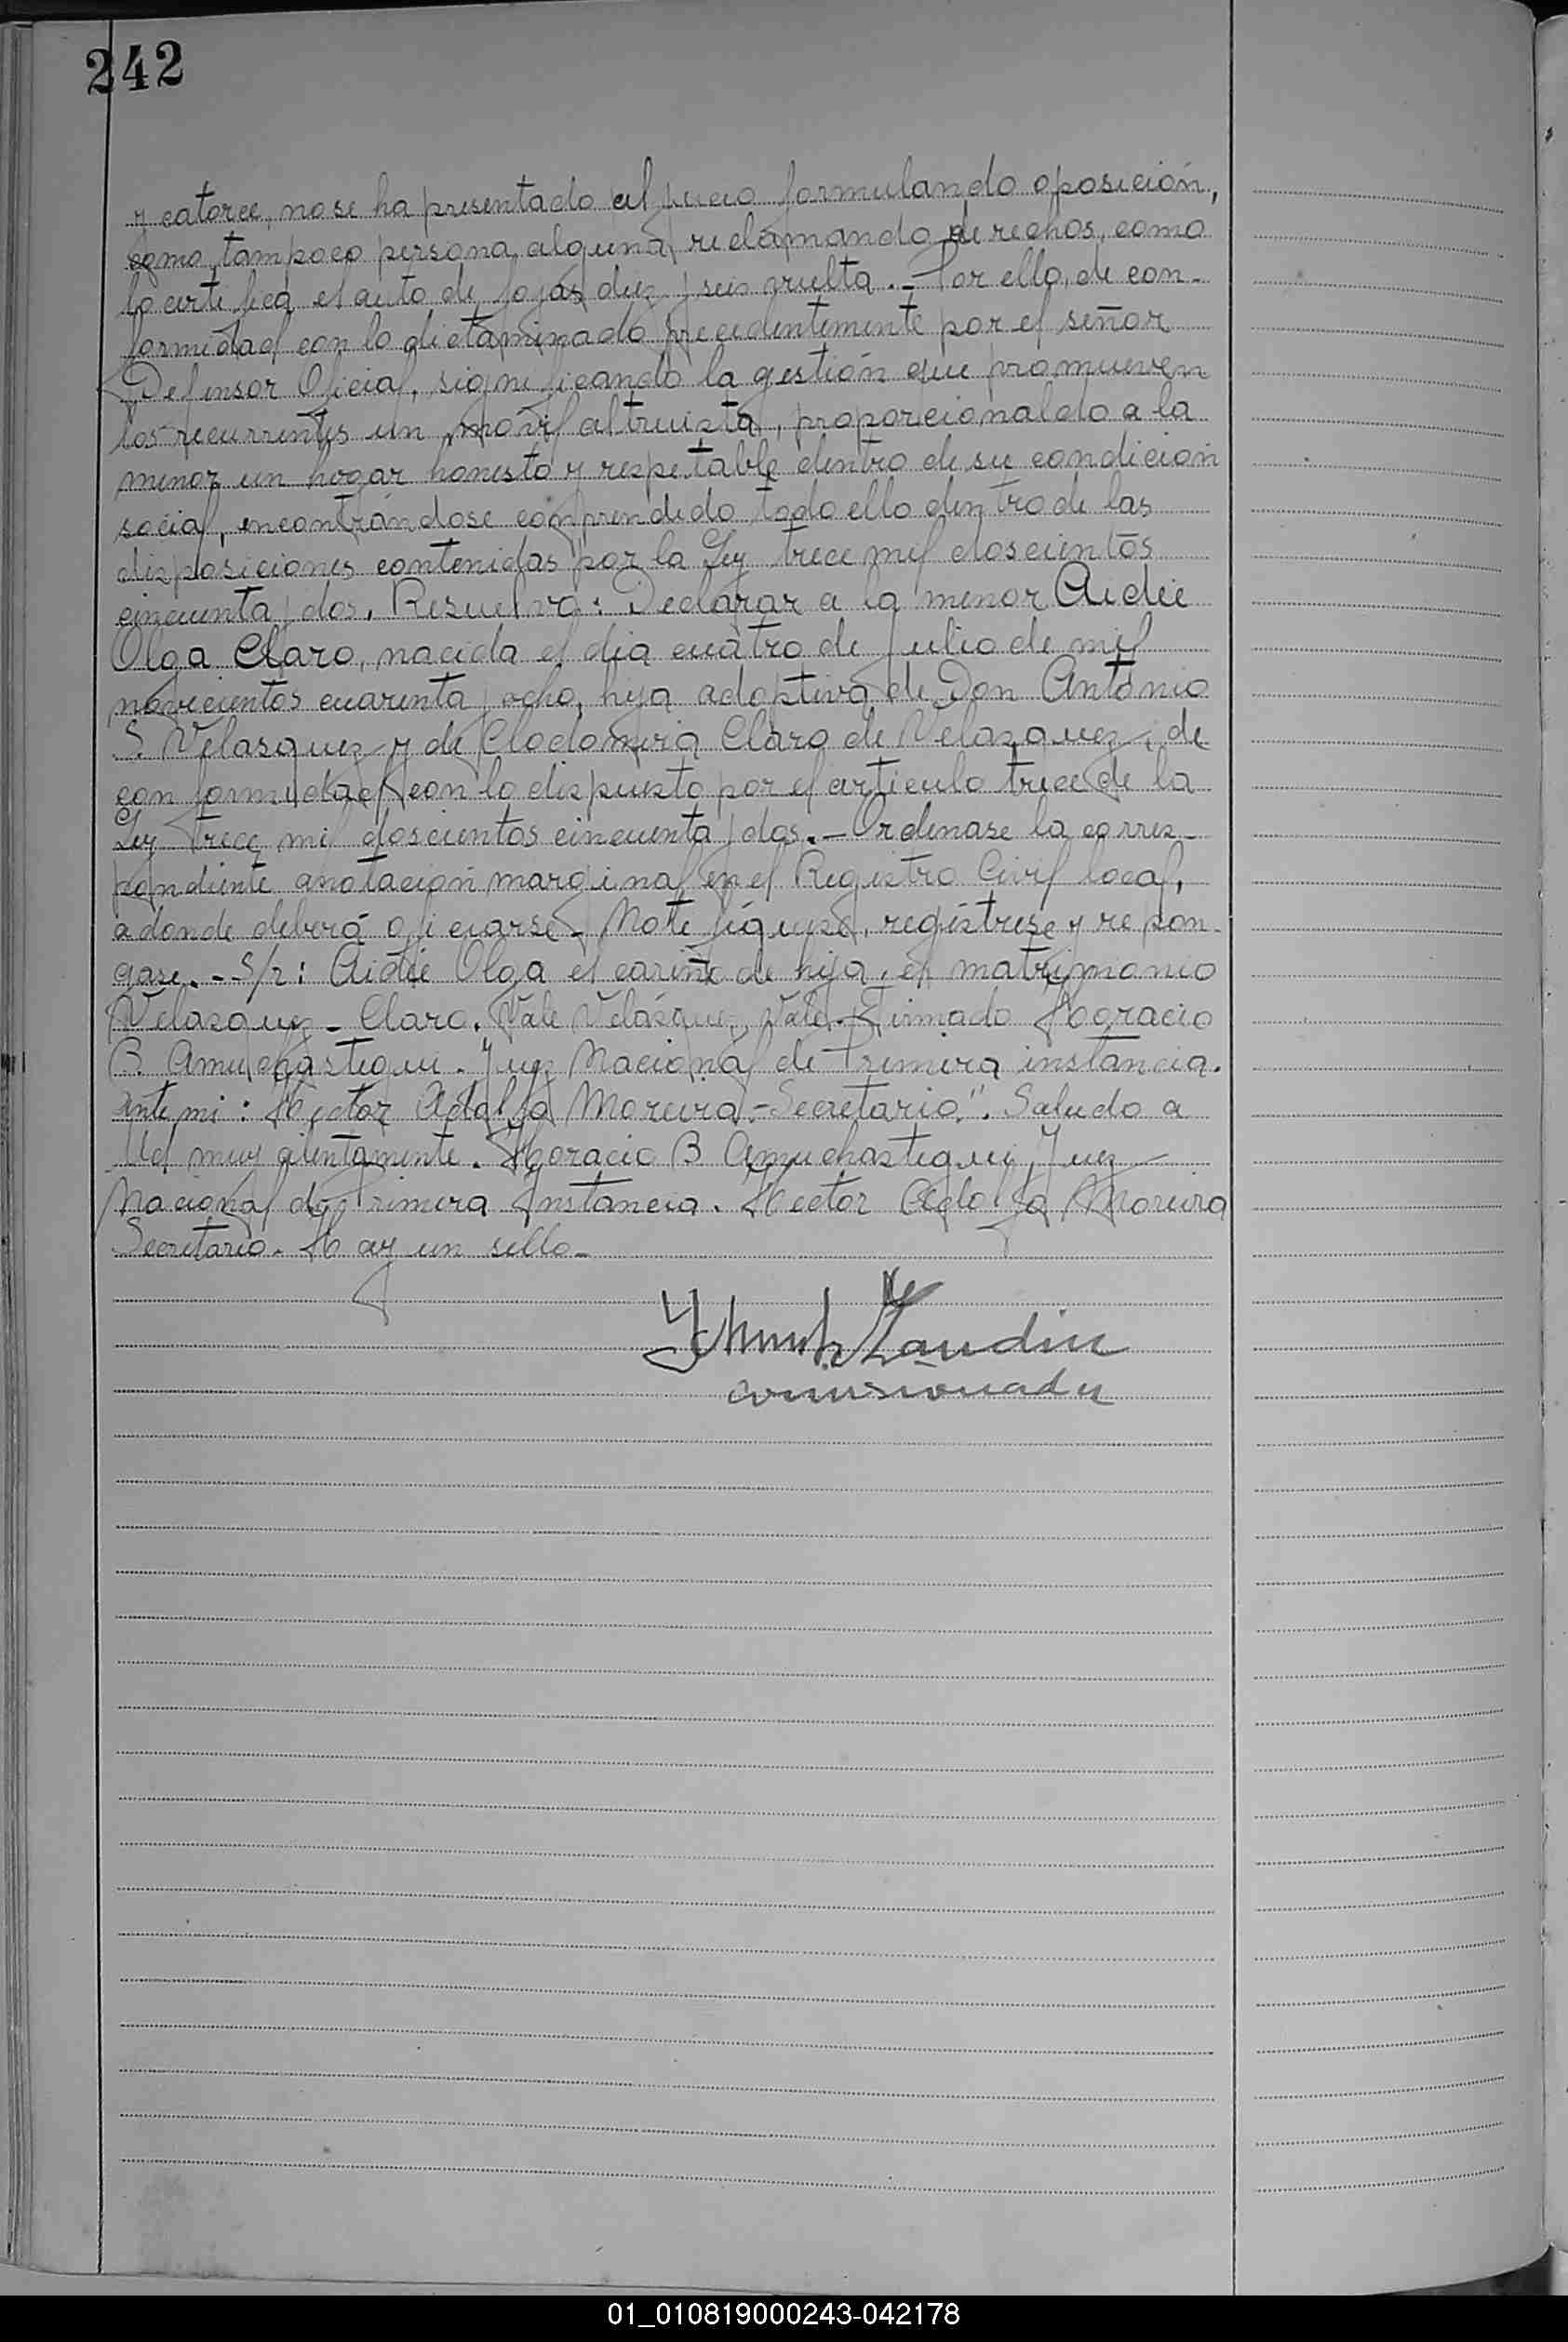 242
y catorce, no se ha presentado al juicio formulando oposición,
como tampoco persona alguna reclamando derechos, como
lo certifica el auto de fojas diez y seis vuelta.- Por ello, de con-
formidad con lo dictaminado precedentemente por el señor
Defensor Oficial, significando la gestión que promueven
los recurrentes un móvil altruista, proporcionaldo a la
menor un hogar honesto y respetable dentro de su condición
social, encontrándose comprendido todo ello dentro de las
disposiciones contenidas por la Ley trece mil doscientos
cincuenta y dos, Resuelvo: Declarar a la menor Aidée
Olga Claro, nacida el día cuatro de Julio de mil
novecientos cuarenta y ocho, hija adoptiva de Don Antonio
S. Velasquez y de Clodomira Claro de Velazquez, de
conformidad con lo dispuesto por el artículo trece de la
Ley trece mil doscientos cincuenta y dos.- Ordenase la corres-
pondiente anotación marginal en el Registro Civil local,
a donde deberá oficiarse.- Notifíquese, regístrese y repon-
gase.- S/r: Aidée Olga el cariño de hija, el matrimonio
Velazquez - Claro. Vale Velásquez, Vale.- Firmado Horacio
B. Amuchastegui. Juez Nacional de Primera instancia.
Ante mi: Hector Adolfo Moreira.- Secretario". Saludo a
Ud. muy atentamente. Horacio B Amuchastegui, Juez
Nacional de Primera Instancia. Hector Adolfo Moreira
Secretario. Hay un sello.-
Landin
comisionado
01_010819000243-042178